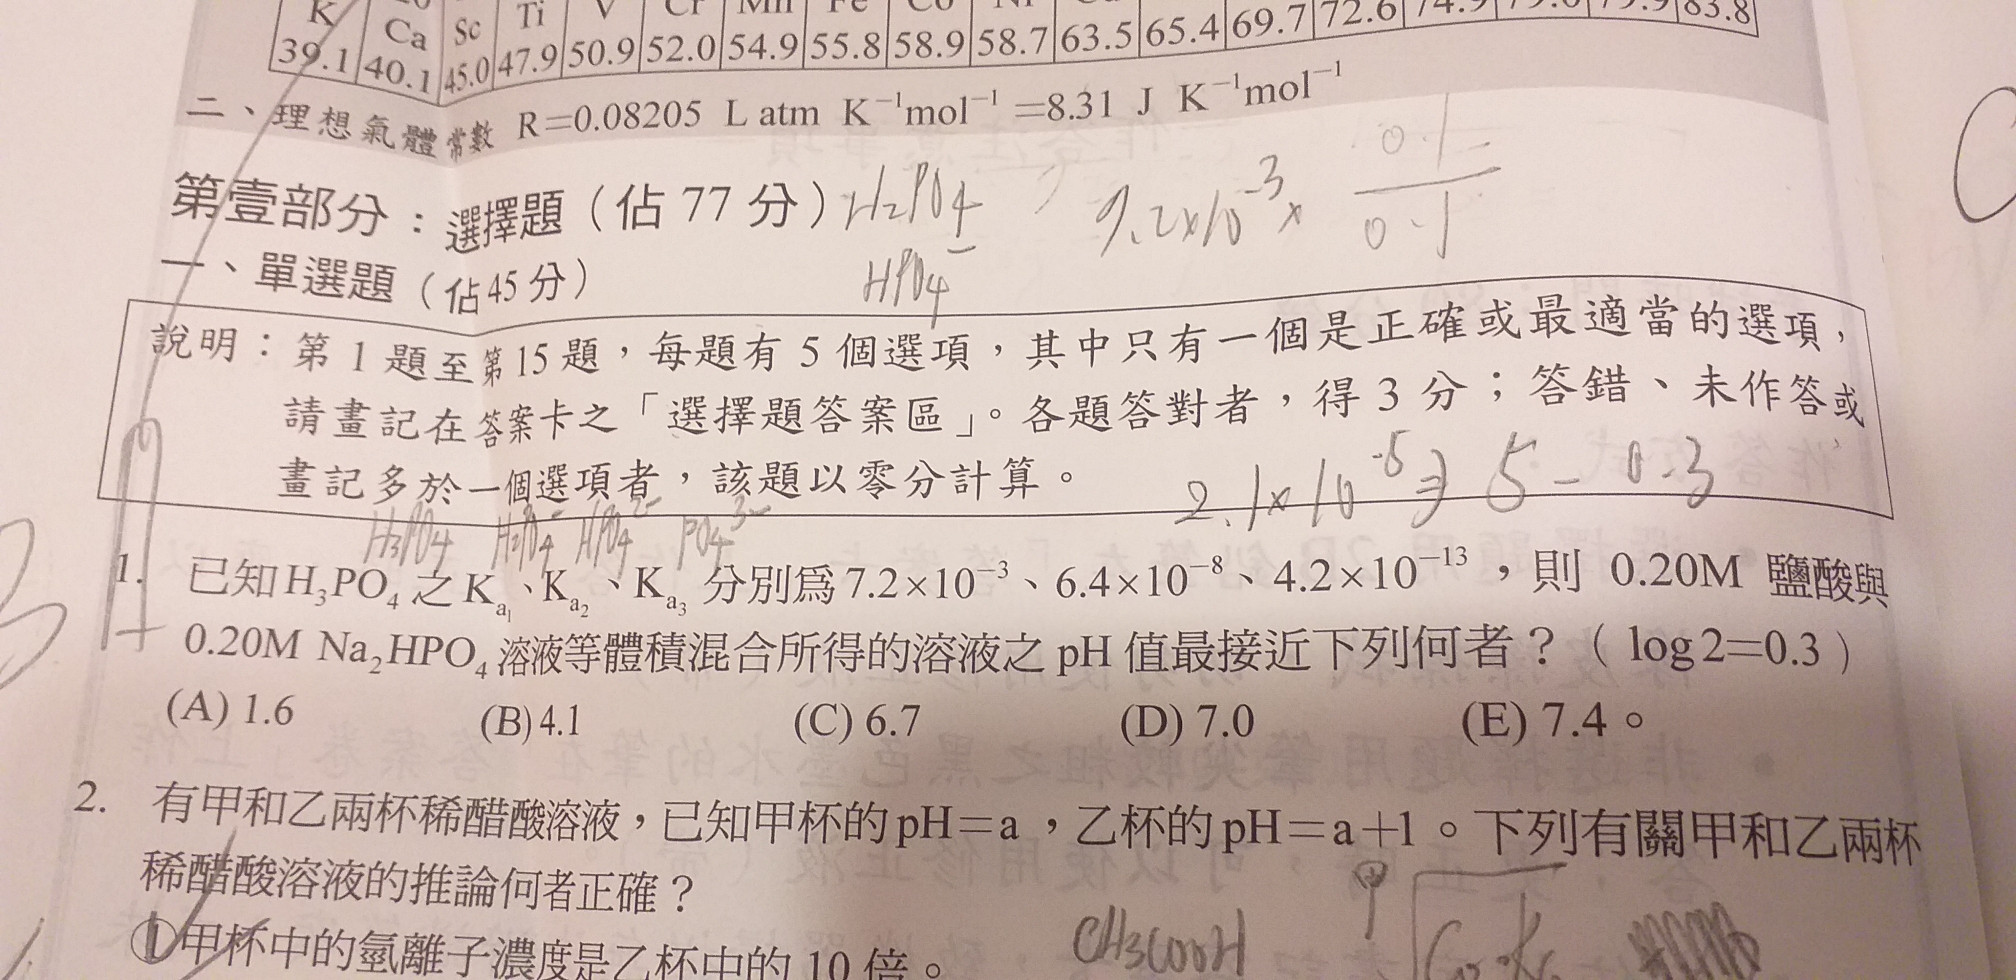 K Ca Sc Ti V Cr Mn Fe Co Ni
39.1 40.1 45.0 47.9 50.9 52.0 54.9 55.8 58.9 58.7 63.5 65.4 69.7 72.6 74.9 83.8
二、理想氣體常數 R=0.08205 L atm K⁻¹mol⁻¹=8.31 J K⁻¹mol⁻¹
第壹部分:選擇題(佔 77 分) H₂PO₄⁻ 9.2×10⁻³× 0.1/0.1
一、單選題(佔45分) HPO₄
說明:第 1 題至第 15 題,每題有 5 個選項,其中只有一個是正確或最適當的選項,
請畫記在答案卡之「選擇題答案區」。各題答對者,得 3 分;答錯、未作答或
畫記多於一個選項者,該題以零分計算。 2.1×10⁻⁵⇒ 5-0.3
H₃PO₄ H₂PO₄⁻ HPO₄²⁻ PO₄³⁻
1. 已知H₃PO₄之Kₐ₁、Kₐ₂、Kₐ₃分別為7.2×10⁻³、6.4×10⁻⁸、4.2×10⁻¹³,則 0.20M 鹽酸與
0.20M Na₂HPO₄溶液等體積混合所得的溶液之 pH 值最接近下列何者?(log2=0.3)
(A) 1.6 (B) 4.1 (C) 6.7 (D) 7.0 (E) 7.4。
2. 有甲和乙兩杯稀醋酸溶液,已知甲杯的pH=a,乙杯的pH=a+1。下列有關甲和乙兩杯
稀醋酸溶液的推論何者正確?
①甲杯中的氫離子濃度是乙杯中的 10 倍。 CH3COOH